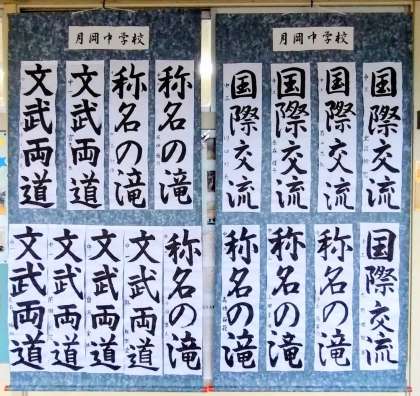 月岡中学校
国際交流
国際交流
国際交流
国際交流
国際交流
称名の滝
称名の滝
称名の滝
月岡中学校
称名の滝
称名の滝
文武両道
文武両道
称名の滝
文武両道
文武両道
文武両道
文武両道